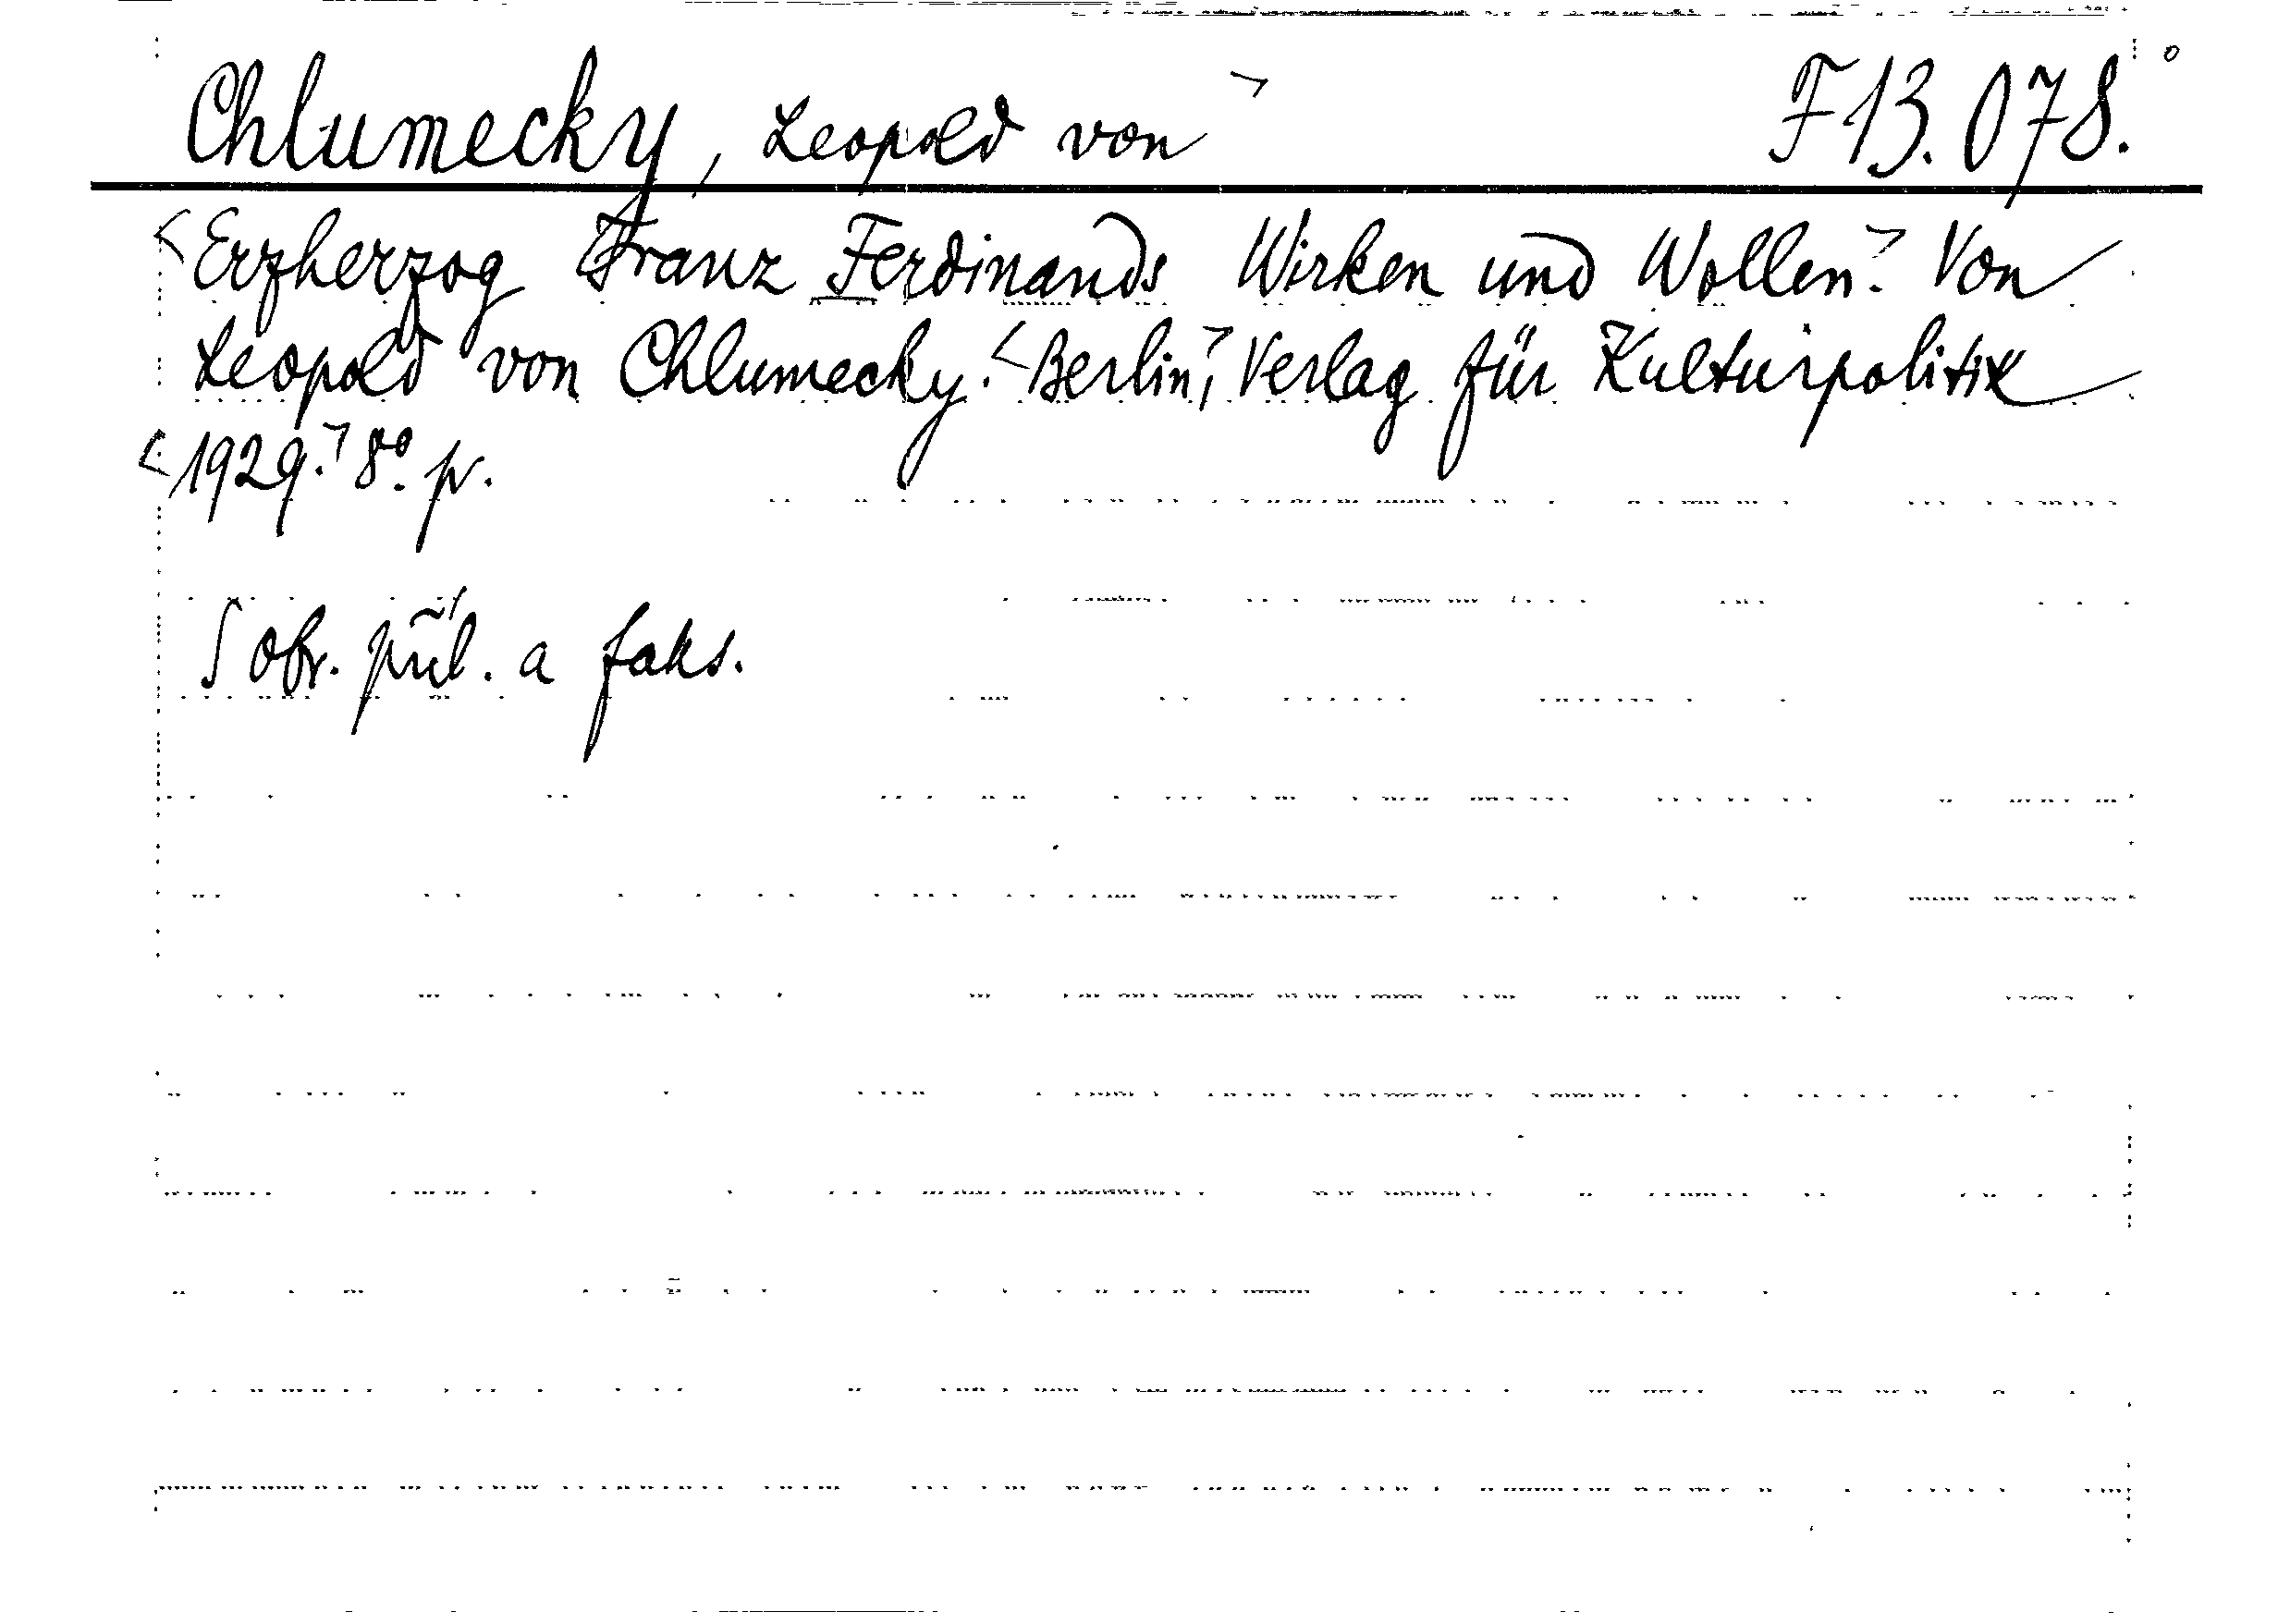 Chlumecky, Leopold von> F 13.078.°
<Erzherzog Franz Ferdinands Wirken und Wollen.> Von
Leopold von Chlumecky. <Berlin>, Verlag für Kulturpolitik
<1929.> 8°. p.
S obr. příl. a faks.